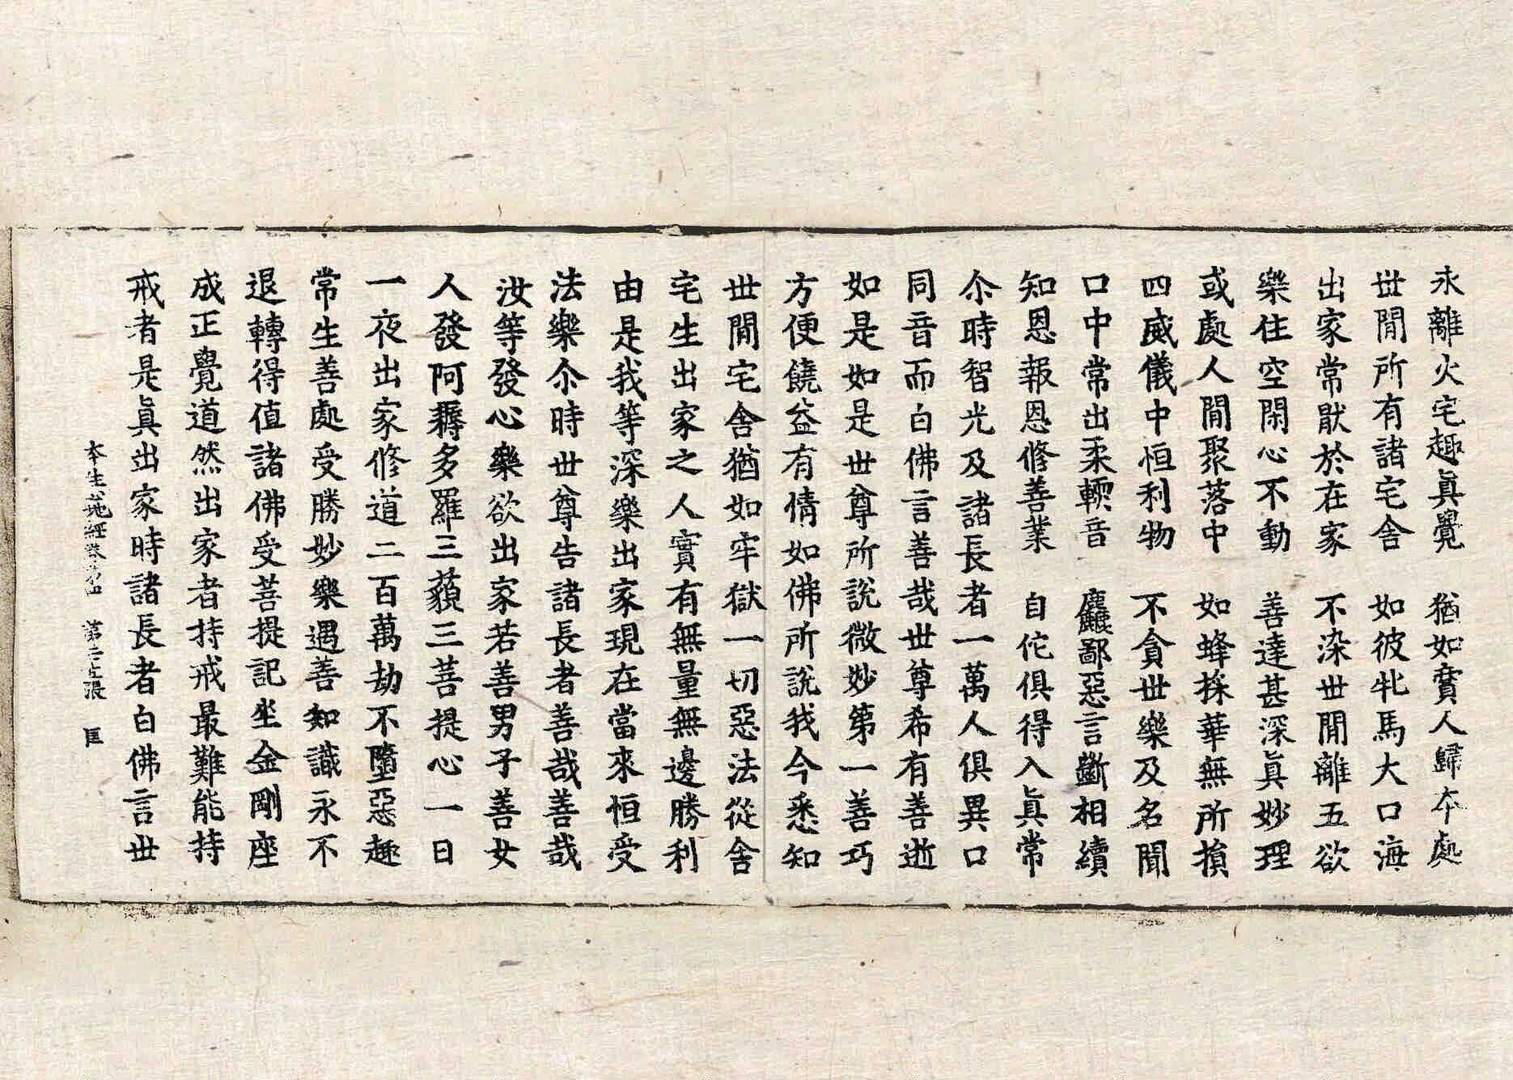 永離火宅趣真覺　猶如賓人歸本處
世閒所有諸宅舍　如彼牝馬大口海
出家常猒於在家　不染世閒離五欲
樂住空閑心不動　善達甚深真妙理
或處人閒聚落中　如蜂採華無所損
四威儀中恒利物　不貪世樂及名聞
口中常出柔輭音　麤鄙惡言斷相續
知恩報恩修善業　自佗俱得入真常
尒時智光及諸長者一萬人俱異口
同音而白佛言善哉世尊希有善逝
如是如是世尊所說微妙第一善巧
方便饒益有情如佛所說我今悉知
世閒宅舍猶如牢獄一切惡法從舍
宅生出家之人實有無量無邊勝利
由是我等深樂出家現在當來恒受
法樂尒時世尊告諸長者善哉善哉
汝等發心樂欲出家若善男子善女
人發阿耨多羅三藐三菩提心一日
一夜出家修道二百萬劫不墮惡趣
常生善處受勝妙樂遇善知識永不
退轉得值諸佛受菩提記坐金剛座
成正覺道然出家者持戒最難能持
戒者是真出家時諸長者白佛言世
本生地經卷第四　第二十五張　匡